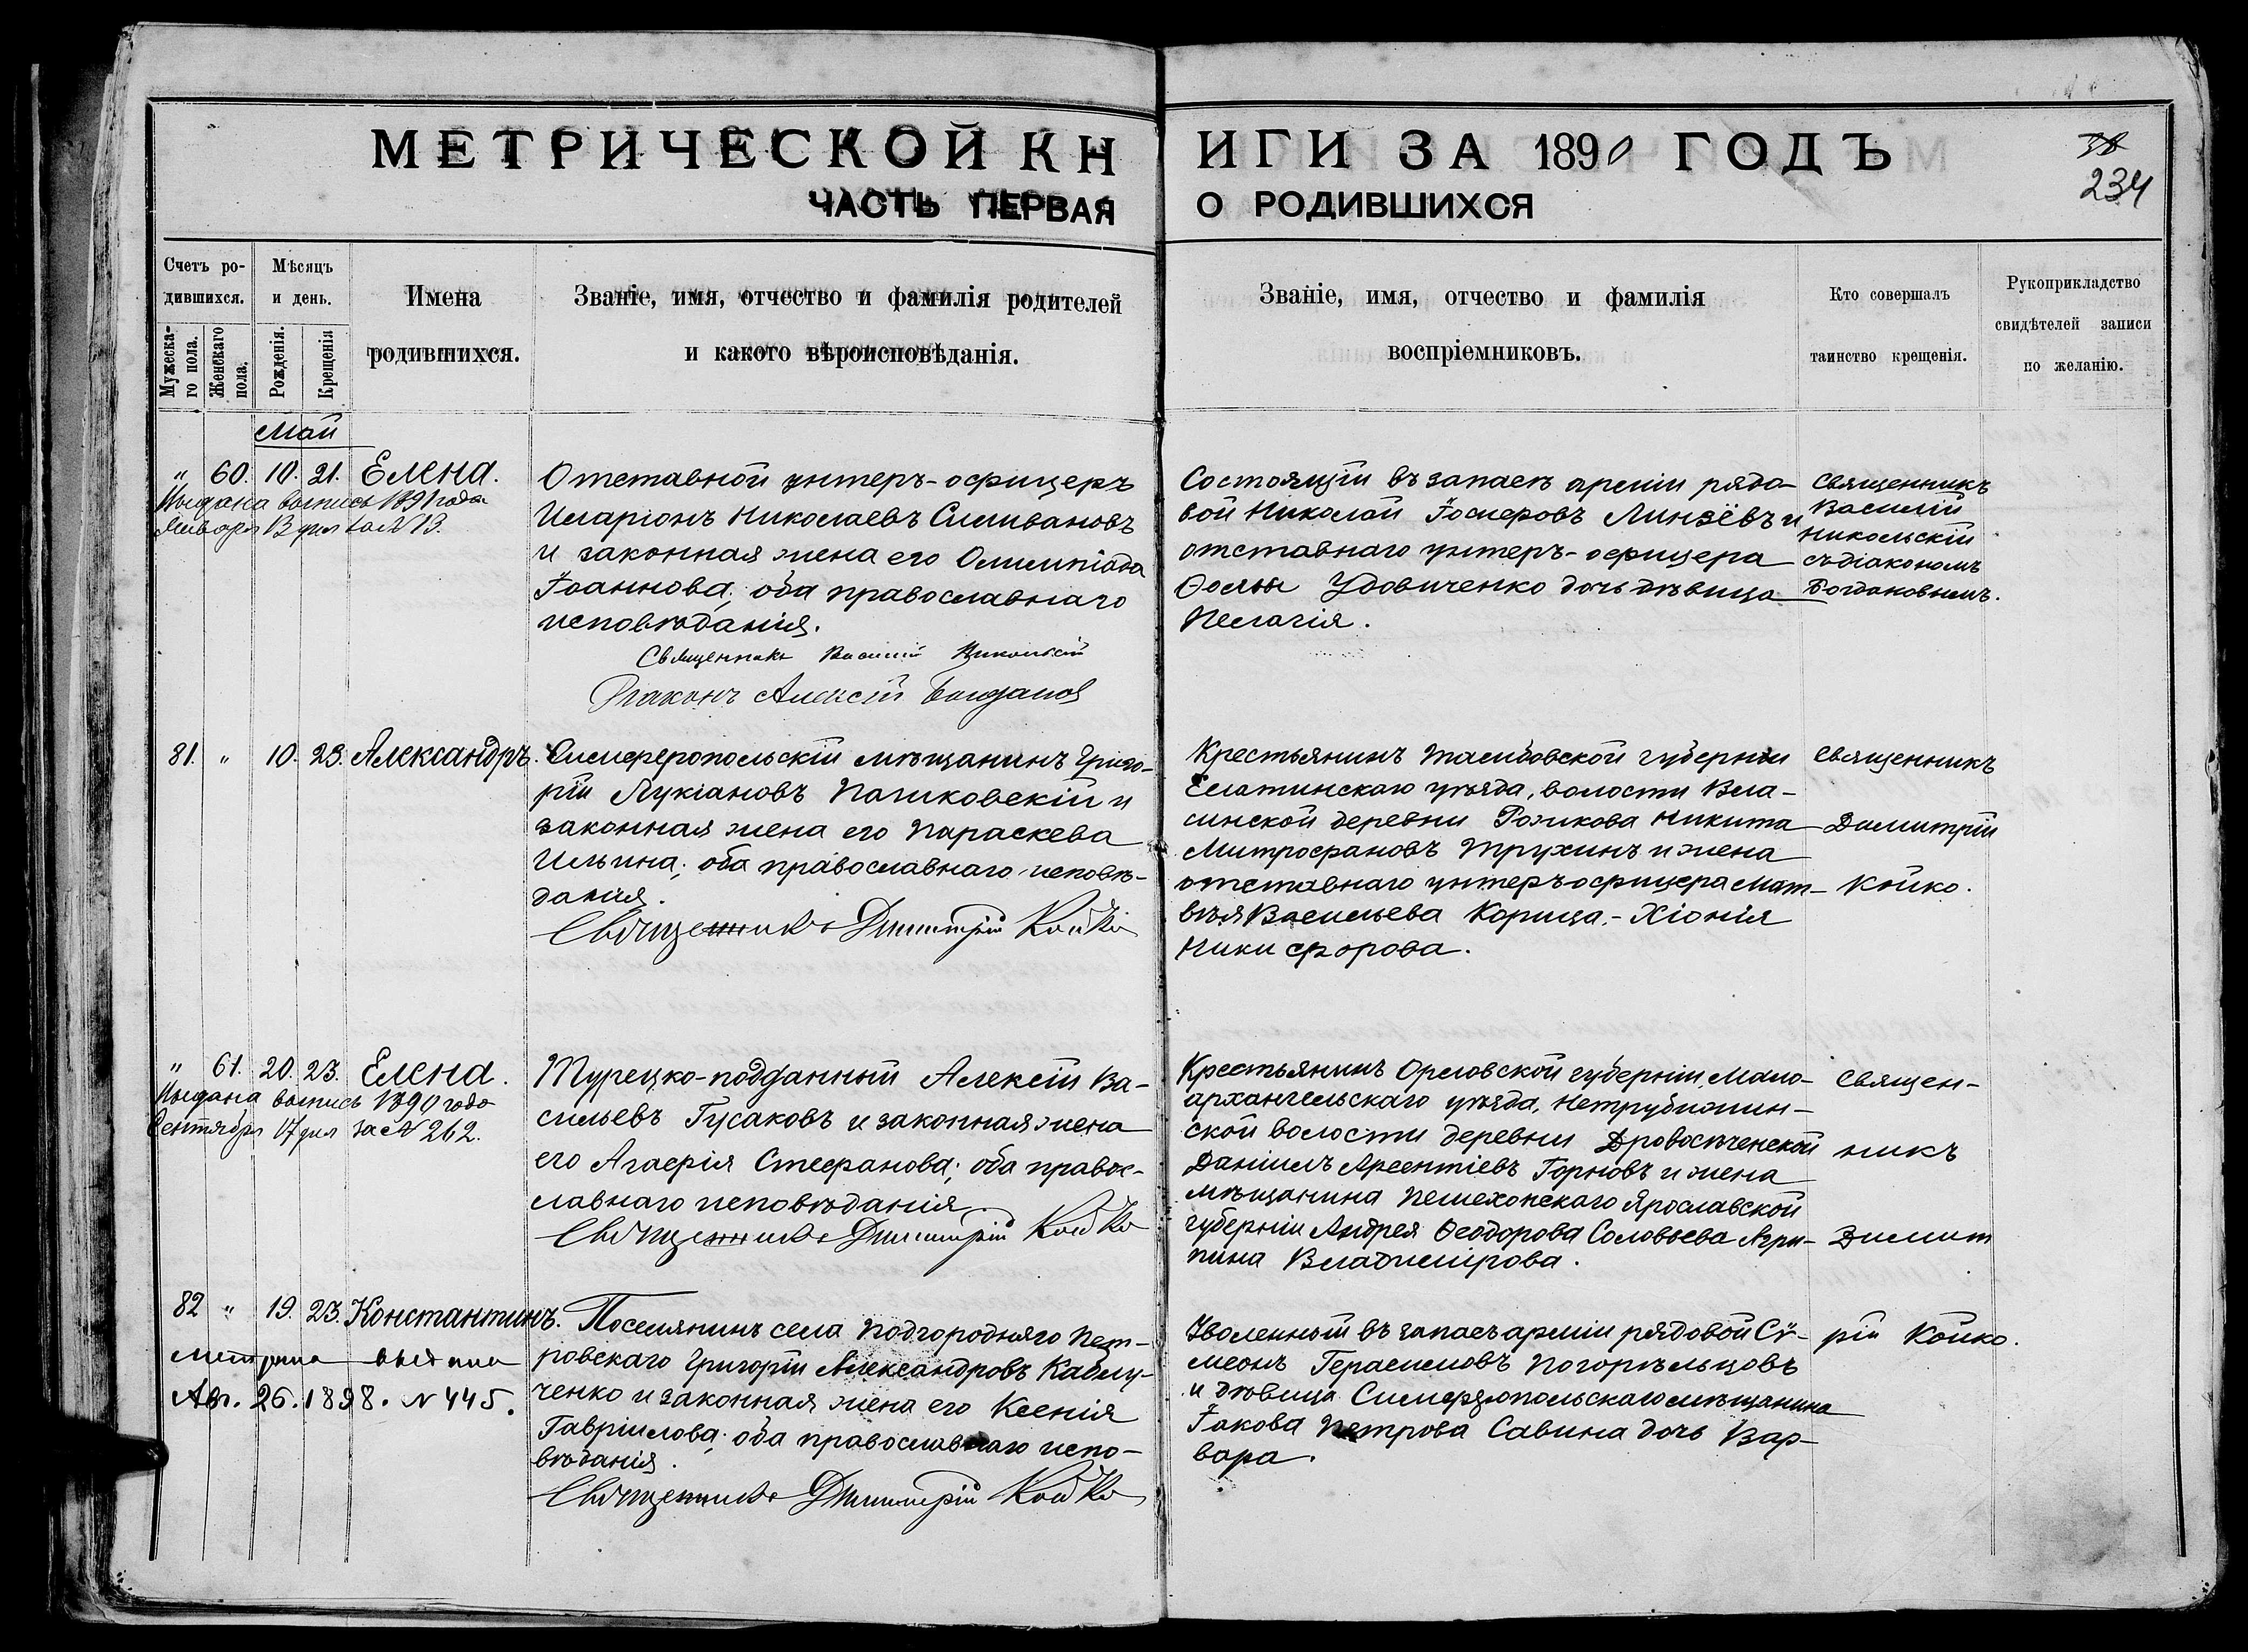 МЕТРИЧЕСКОЙ КНИГИ ЗА 1890 ГОДЪ
ЧАСТЬ ПЕРВАЯ О РОДИВШИХСЯ
38
234
Счетъ ро-
дившихся.
Мужеска-
го пола.
Женскаго
пола.
Мѣсяцъ
и день.
Рожденія.
Крещенія
Имена
родившихся.
Званіе, имя, отчество и фамилія родителей
и какого вѣроисповѣданія.
Званіе, имя, отчество и фамилія
воспріемниковъ.
Кто совершалъ
таинство крещенія.
Рукоприкладство
свидѣтелей записи
по желанію.
Май
" 60. 10. 21. Елена.
Выдана выпись 1891 года
Января 13 дня за № 13.
Отставной унтеръ-офицеръ
Иларіонъ Николаевъ Силивановъ
и законная жена его Олимпіада
Іоаннова; оба православнаго
исповѣданія.
Священникъ Василій Никольскій
Діаконъ Алексій Богданов
Состоящій въ запасѣ арміи рядо-
вой Николай Іосифовъ Линзёвъ и
отставнаго унтеръ-офицера
Ѳомы Удовиченко дочь дѣвица
Пелагія.
Священникъ
Василій
Никольскій
съ діакономъ
Богдановымъ.
81. " 10. 23. Александръ.
Симферопольскій мѣщанинъ Григо-
рій Лукіановъ Пашковскій и
законная жена его Параскева
Ильина; оба православнаго исповѣ-
данія.
Священникъ Димитрій Койко
Крестьянинъ Тамбовской губерніи
Елатинскаго уѣзда, волости Вла-
синской деревни Рожкова Никита
Митрофановъ Трухинъ и жена
отставнаго унтеръ-офицера Мат-
вѣя Васильева Корица - Хіонія
Никифорова.
Священникъ
Димитрій
Койко.
" 61. 20. 23. Елена.
Выдана выпись 1890 года
Сентября 17 дня за № 262.
Турецко-подданный Алексій Ва-
сильевъ Гусаковъ и законная жена
его Агафія Стефанова; оба правос-
лавнаго исповѣданія.
Священникъ Димитрій Койко
Крестьянинъ Орловской губерніи, Мало-
архангельскаго уѣзда,
ской волости деревни
Даніилъ Арсентіевъ Горновъ и жена
мѣщанина Пешехонскаго Ярославской
губерніи Андрея Ѳеодорова Соловьева Агри-
пина Владимірова.
Священ-
никъ
Димит
82 " 19. 23. Константинъ.
Метрика выдана
Авг. 26. 1898. N 445.
Поселянинъ села Подгородняго Пет-
ровскаго Григорій Александровъ Каблу-
ченко и законная жена его Ксенія
Гавріилова; оба православнаго испо-
вѣданія.
Священникъ Димитрій Койко
Уволенный въ запасъ арміи рядовой Сѵ-
меонъ Герасимовъ Погорѣльцовъ
и дѣвица Симферопольскаго мѣщанина
Іакова Петрова Савина дочь Вар-
вара.
рій Койко.